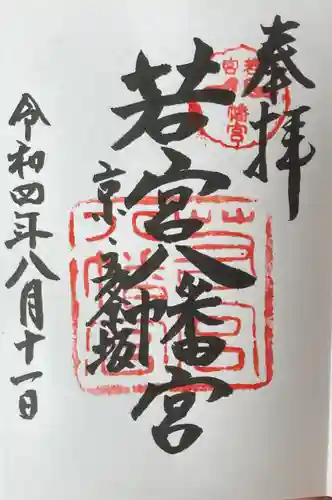 奉拝
若宮八幡宮
京・五条坂
令和四年八月十一日
若宮八幡宮